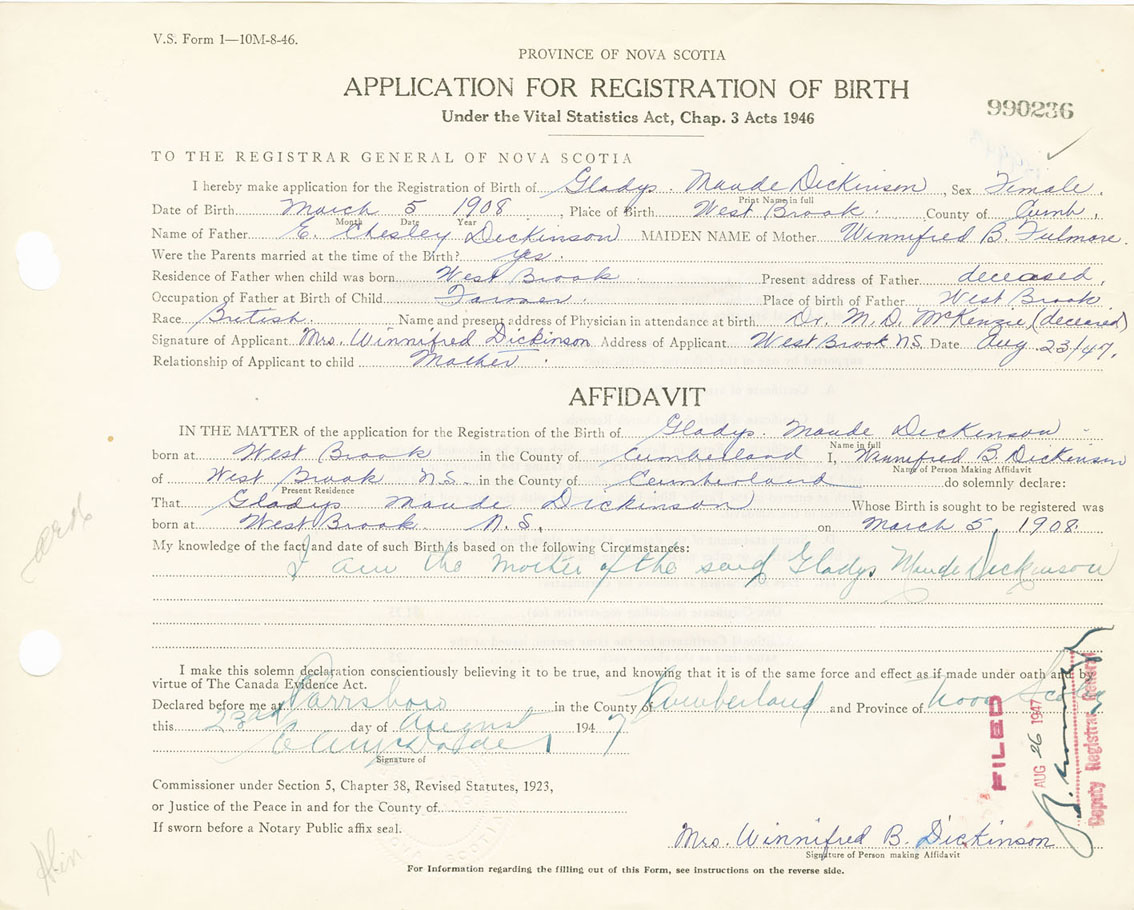 V.S. Form 1—10M-8-46.
PROVINCE OF NOVA SCOTIA
APPLICATION FOR REGISTRATION OF BIRTH
990236
Under the Vital Statistics Act, Chap. 3 Acts 1946
TO THE REGISTRAR GENERAL OF NOVA SCOTIA
I hereby make application for the Registration of Birth of Gladys Maude Dickinson, Sex Female.
Print Name in full
Date of Birth March 5 1908, Place of Birth West Brook. County of Cumb,
Month Date Year
Name of Father E. Chesley Dickinson MAIDEN NAME of Mother Winnifred B. Fulmore.
Were the Parents married at the time of the Birth? yes.
Residence of Father when child was born West Brook Present address of Father deceased,
Occupation of Father at Birth of Child Farmer. Place of birth of Father West Brook
Race British. Name and present address of Physician in attendance at birth Dr. M. D. McKenzie (deceased)
Signature of Applicant Mrs. Winnifred Dickinson Address of Applicant West Brook NS Date Aug 23/47.
Relationship of Applicant to child Mother.
AFFIDAVIT
IN THE MATTER of the application for the Registration of the Birth of Gladys. Maude Dickinson
Name in full
born at West Brook in the County of Cumberland I, Winnifred B. Dickinson
Name of Person Making Affidavit
of West Brook N.S. in the County of Cumberland do solemnly declare:
Present Residence
That Gladys Maude Dickinson Whose Birth is sought to be registered was
born at West Brook. N.S, on March 5, 1908
My knowledge of the fact and date of such Birth is based on the following Circumstances:
I am the mother of the said Gladys Maude Dickinson
I make this solemn declaration conscientiously believing it to be true, and knowing that it is of the same force and effect as if made under oath and by
virtue of The Canada Evidence Act.
Declared before me at Parrsboro in the County of Cumberland and Province of Nova Scotia
this 23rd day of August 1947
Signature of
Commissioner under Section 5, Chapter 38, Revised Statutes, 1923,
or Justice of the Peace in and for the County of
If sworn before a Notary Public affix seal.
FILED
AUG 26 1947
Deputy Registrar General
Mrs. Winnifred B. Dickinson
Signature of Person making Affidavit
For Information regarding the filling out of this Form, see instructions on the reverse side.